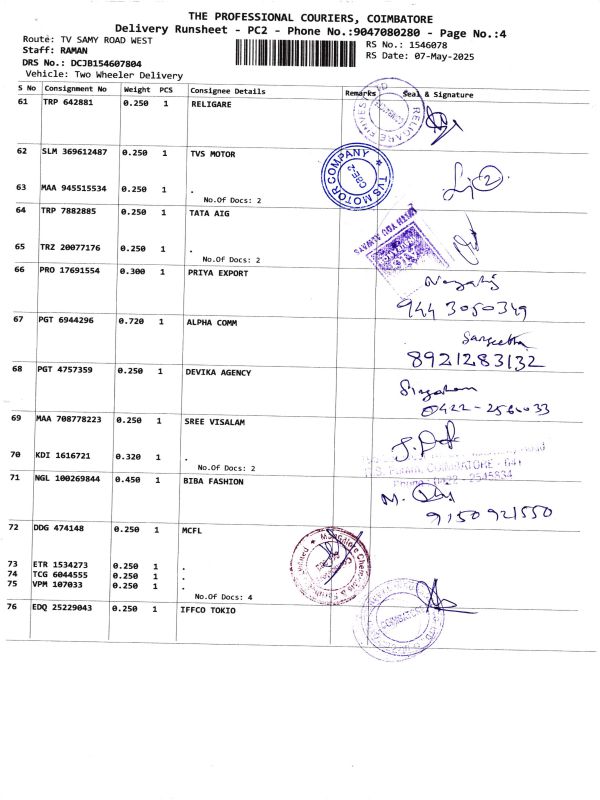 THE PROFESSIONAL COURIERS, COIMBATORE
Delivery Runsheet - PC2 - Phone No.:9047080280 - Page No.:4
Route: TV SAMY ROAD WEST
RS No.: 1546078
Staff: RAMAN
RS Date: 07-May-2025
DRS No.: DCJB154607804
Vehicle: Two Wheeler Delivery
S No Consignment No Weight PCS Consignee Details Remarks Seal & Signature
61 TRP 642881 0.250 1 RELIGARE
RELIGARE
62 SLM 369612487 0.250 1 TVS MOTOR
TVS MOTOR COMPANY ★
CBE-2
2
63 MAA 945515534 0.250 1 .
No.Of Docs: 2
64 TRP 7882885 0.250 1 TATA AIG
WITH YOU ALWAYS
65 TRZ 20077176 0.250 1 .
No.Of Docs: 2
66 PRO 17691554 0.300 1 PRIYA EXPORT
944 3050349
67 PGT 6944296 0.720 1 ALPHA COMM
Sangeetha
8921283132
68 PGT 4757359 0.250 1 DEVIKA AGENCY
69 MAA 708778223 0.250 1 SREE VISALAM
70 KDI 1616721 0.320 1 .
No.Of Docs: 2
COIMBATORE - 641
Phone : 0422 - 2545834
71 NGL 100269844 0.450 1 BIBA FASHION
M.
9150921550
72 DDG 474148 0.250 1 MCFL
Mangalore Chemicals &
73 ETR 1534273 0.250 1 .
74 TCG 6044555 0.250 1 .
75 VPM 107033 0.250 1 .
No.Of Docs: 4
76 EDQ 25229043 0.250 1 IFFCO TOKIO
COIMBATORE